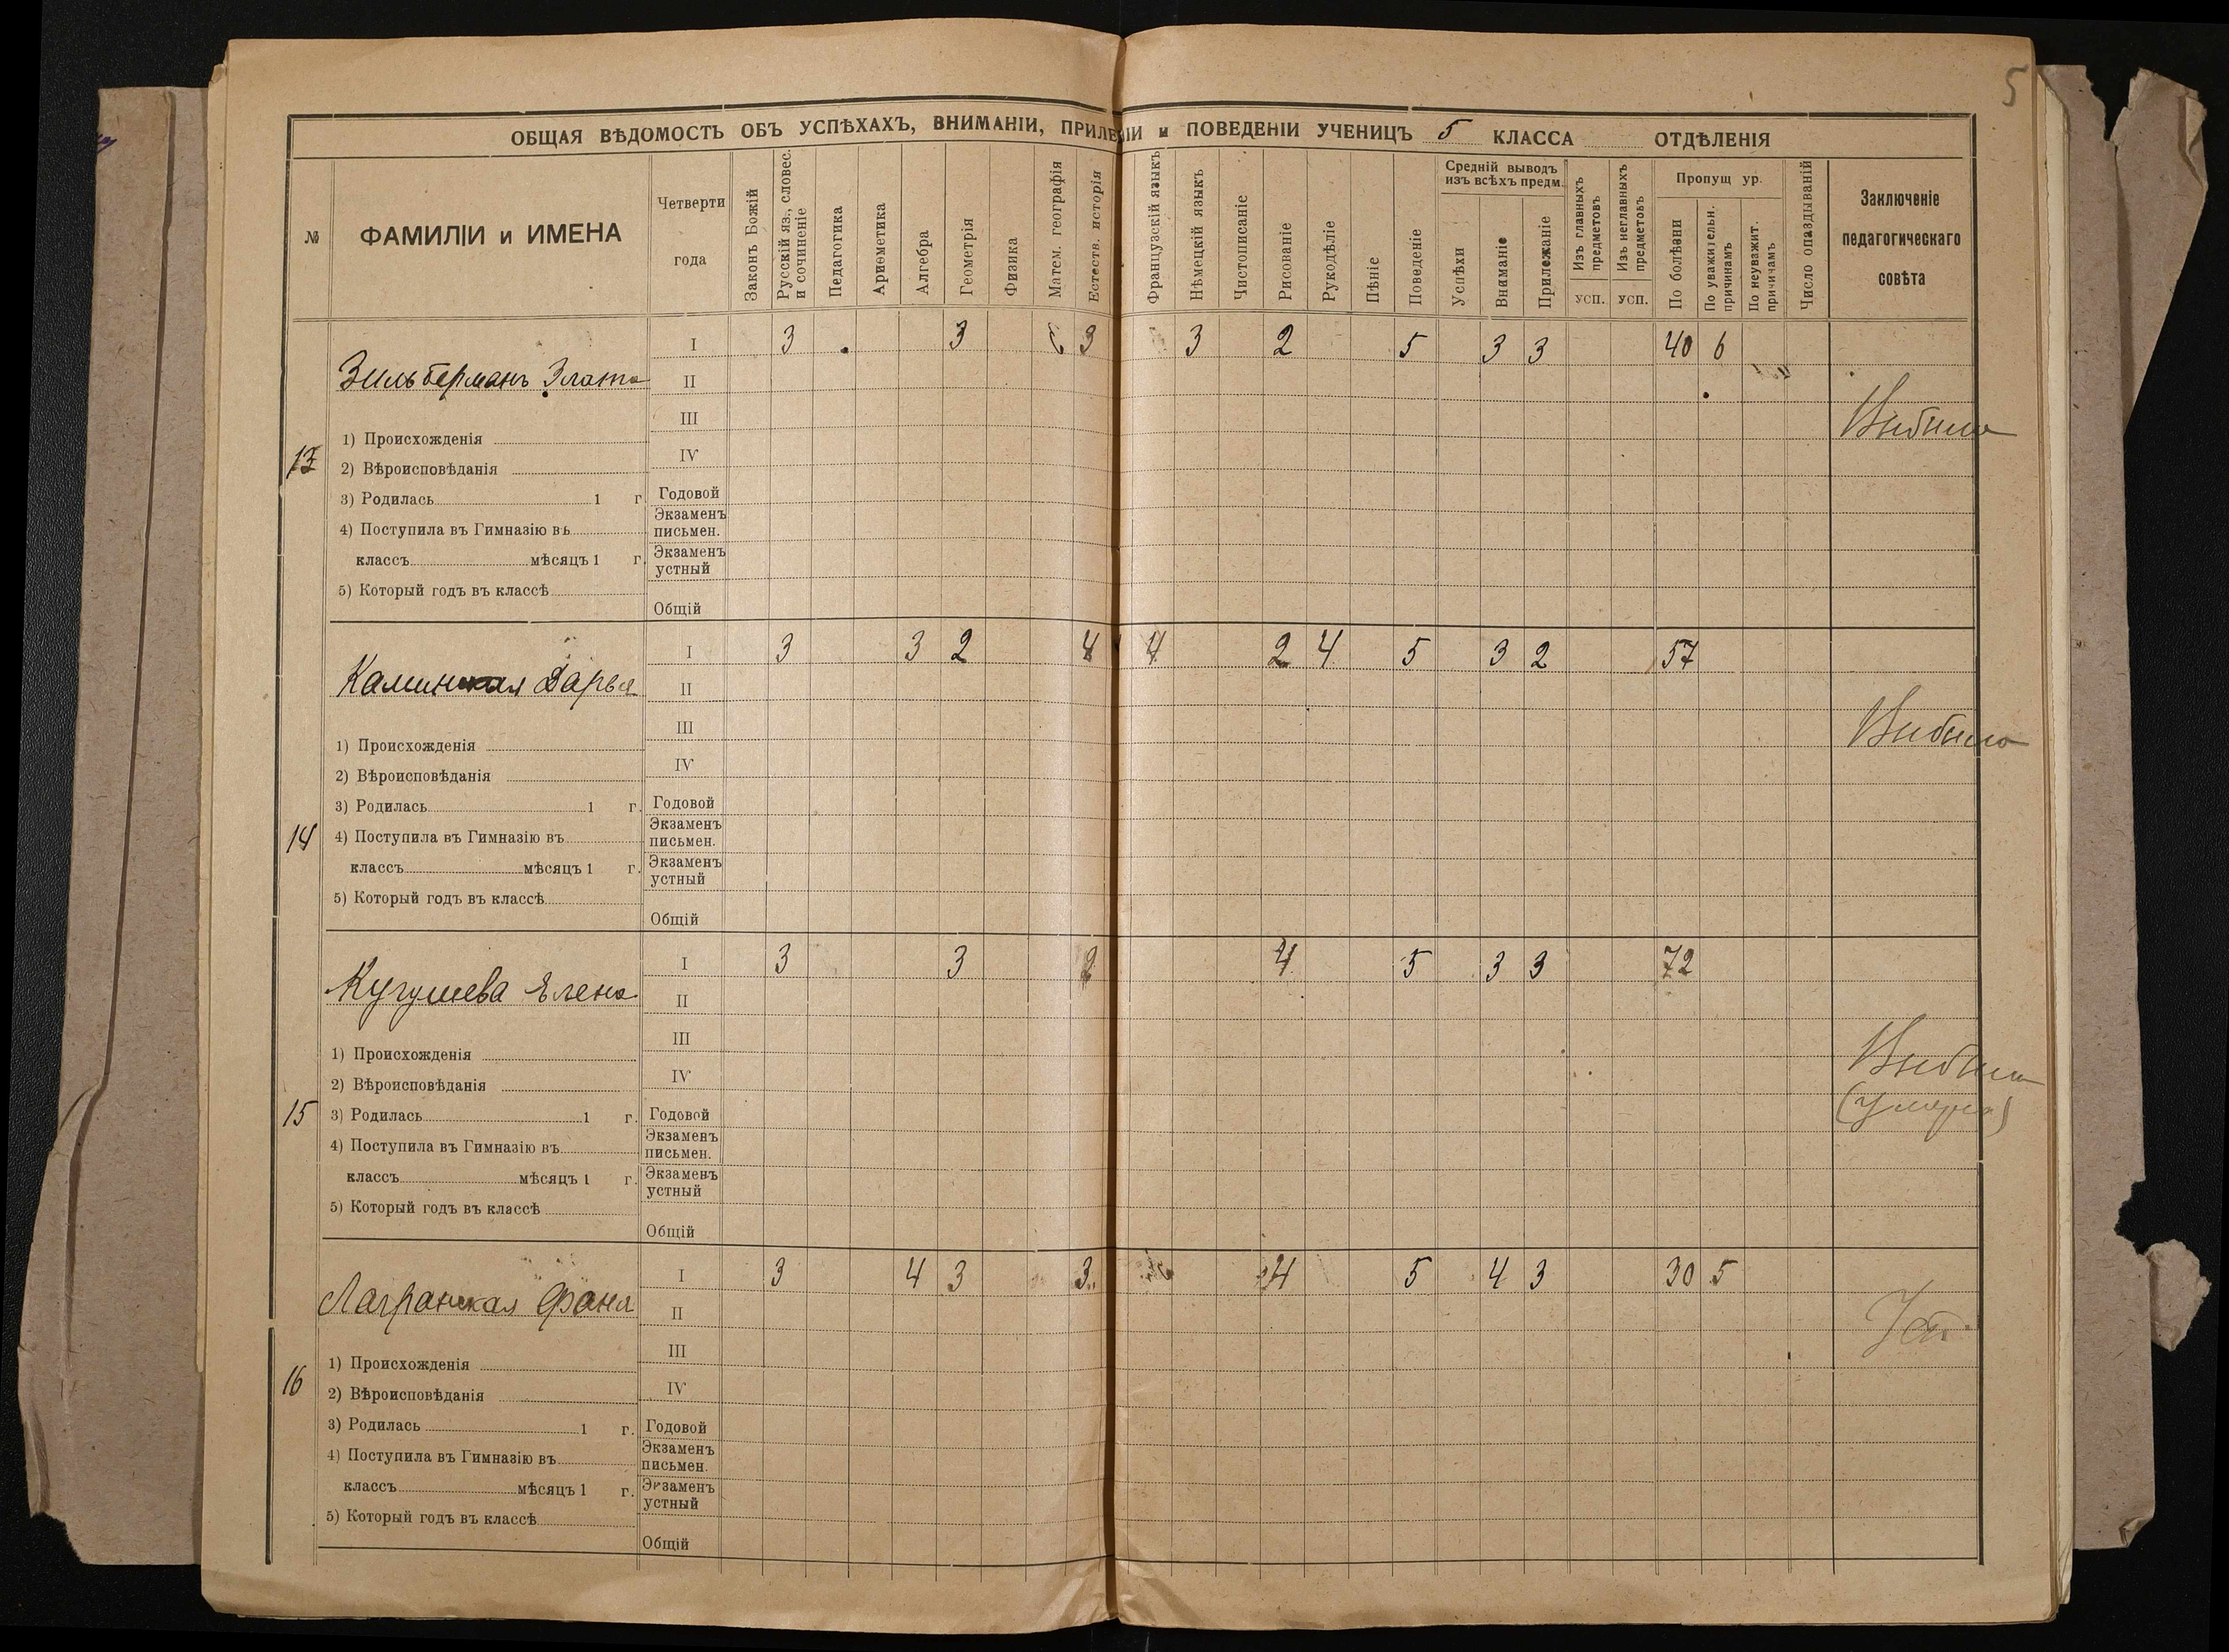 5
ОБЩАЯ ВѢДОМОСТЬ ОБЪ УСПѢХАХЪ, ВНИМАНІИ, ПРИЛЕ ІИ и ПОВЕДЕНІИ УЧЕНИЦЪ 5 КЛАССА ОТДѢЛЕНІЯ
№ ФАМИЛІИ и ИМЕНА
Четверти года
Законъ Божій
Русскій яз., словес. и сочиненіе
Педагогика
Ариѳметика
Алгебра
Геометрія
Физика
Матем. географія
Естеств. исторія
Французскій языкъ
Нѣмецкій языкъ
Чистописаніе
Рисованіе
Рукодѣліе
Пѣніе
Поведеніе
Средній выводъ изъ всѣхъ предм.
Успѣхи
Вниманіе
Прилежаніе
Изъ главныхъ предметовъ
усп.
Изъ неглавныхъ предметовъ
усп.
Пропущ ур.
По болѣзни
По уважительн. причинамъ
По неуважит. причинамъ
Число опаздываній
Заключеніе педагогическаго совѣта
13
Зильберманъ Злата
I 3 3 3 3 2 5 3 3 40 6
II
III
Выбыла
1) Происхожденія
IV
2) Вѣроисповѣданія
3) Родилась 1 г.
Годовой
4) Поступила въ Гимназію въ
Экзаменъ письмен.
классъ мѣсяцъ 1 г.
Экзаменъ устный
5) Который годъ въ классѣ
Общій
14
Каминская Дарья
I 3 3 2 4 4 2 4 5 3 2 57
II
III
Выбыла
1) Происхожденія
IV
2) Вѣроисповѣданія
3) Родилась 1 г.
Годовой
4) Поступила въ Гимназію въ
Экзаменъ письмен.
классъ мѣсяцъ 1 г.
Экзаменъ устный
5) Который годъ въ классѣ
Общій
15
Кугушева Елена
I 3 3 2 4 5 3 3 72
II
III
Выбыла
(умерла)
1) Происхожденія
IV
2) Вѣроисповѣданія
3) Родилась 1 г.
Годовой
4) Поступила въ Гимназію въ
Экзаменъ письмен.
классъ мѣсяцъ 1 г.
Экзаменъ устный
5) Который годъ въ классѣ
Общій
16
Лагранская Фаня
I 3 4 3 3 4 5 4 3 30 5
II
III
1) Происхожденія
IV
2) Вѣроисповѣданія
3) Родилась 1 г.
Годовой
4) Поступила въ Гимназію въ
Экзаменъ письмен.
классъ мѣсяцъ 1 г.
Экзаменъ устный
5) Который годъ въ классѣ
Общій